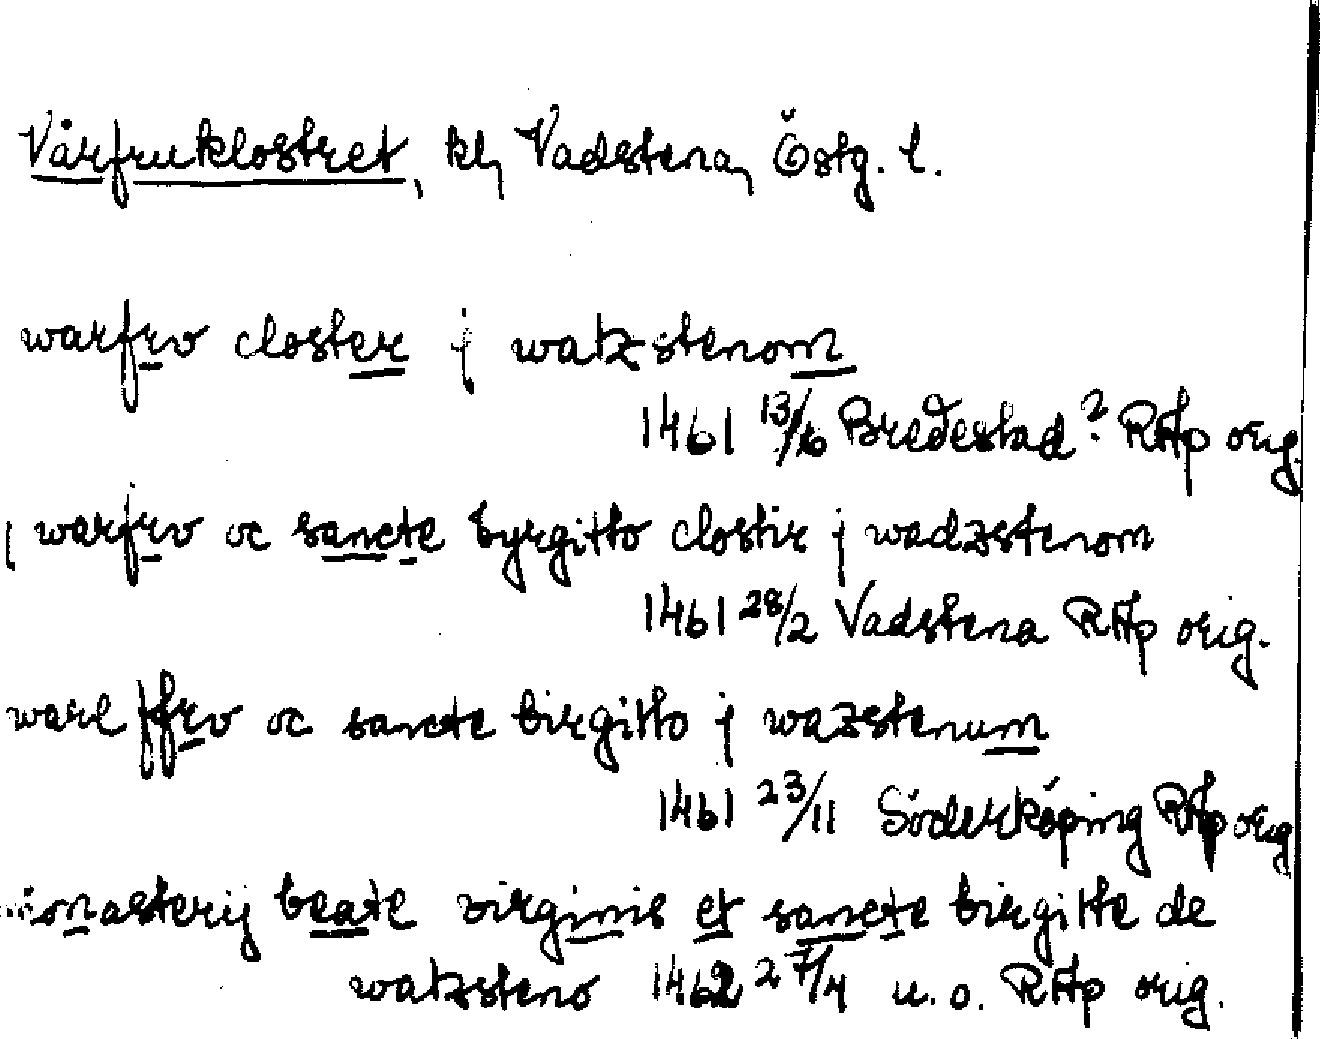 Vårfruklostret, kl, Vadstena, Östg. l.
warfrv closter j watzstenom
1461 13/6 Bredestad? RAp orig.
j warfrv oc sancte byrgitto clostir j wadzstenom
1461 28/2 Vadstena RAp orig.
ware ffrv oc sancte birgitto j wazstenum
1461 23/11 Söderköping RAp orig
monasterij beate virginis et sancte birgitte de
watzsteno 1462 27/4 u.o. RAp orig.